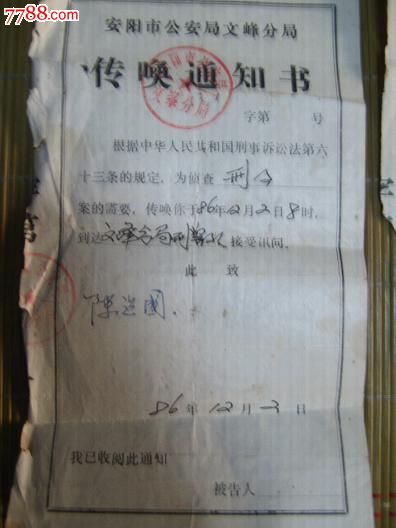 7788.com
安阳市公安局文峰分局
传唤通知书
文峰分局
字第 号
根据中华人民共和国刑事诉讼法第六
十三条的规定，为侦查
案的需要，传唤你于86年12月2日8时，
到达文峰分局刑警队接受讯问。
此致
陈
86年12月2日
我已收阅此通知
被告人